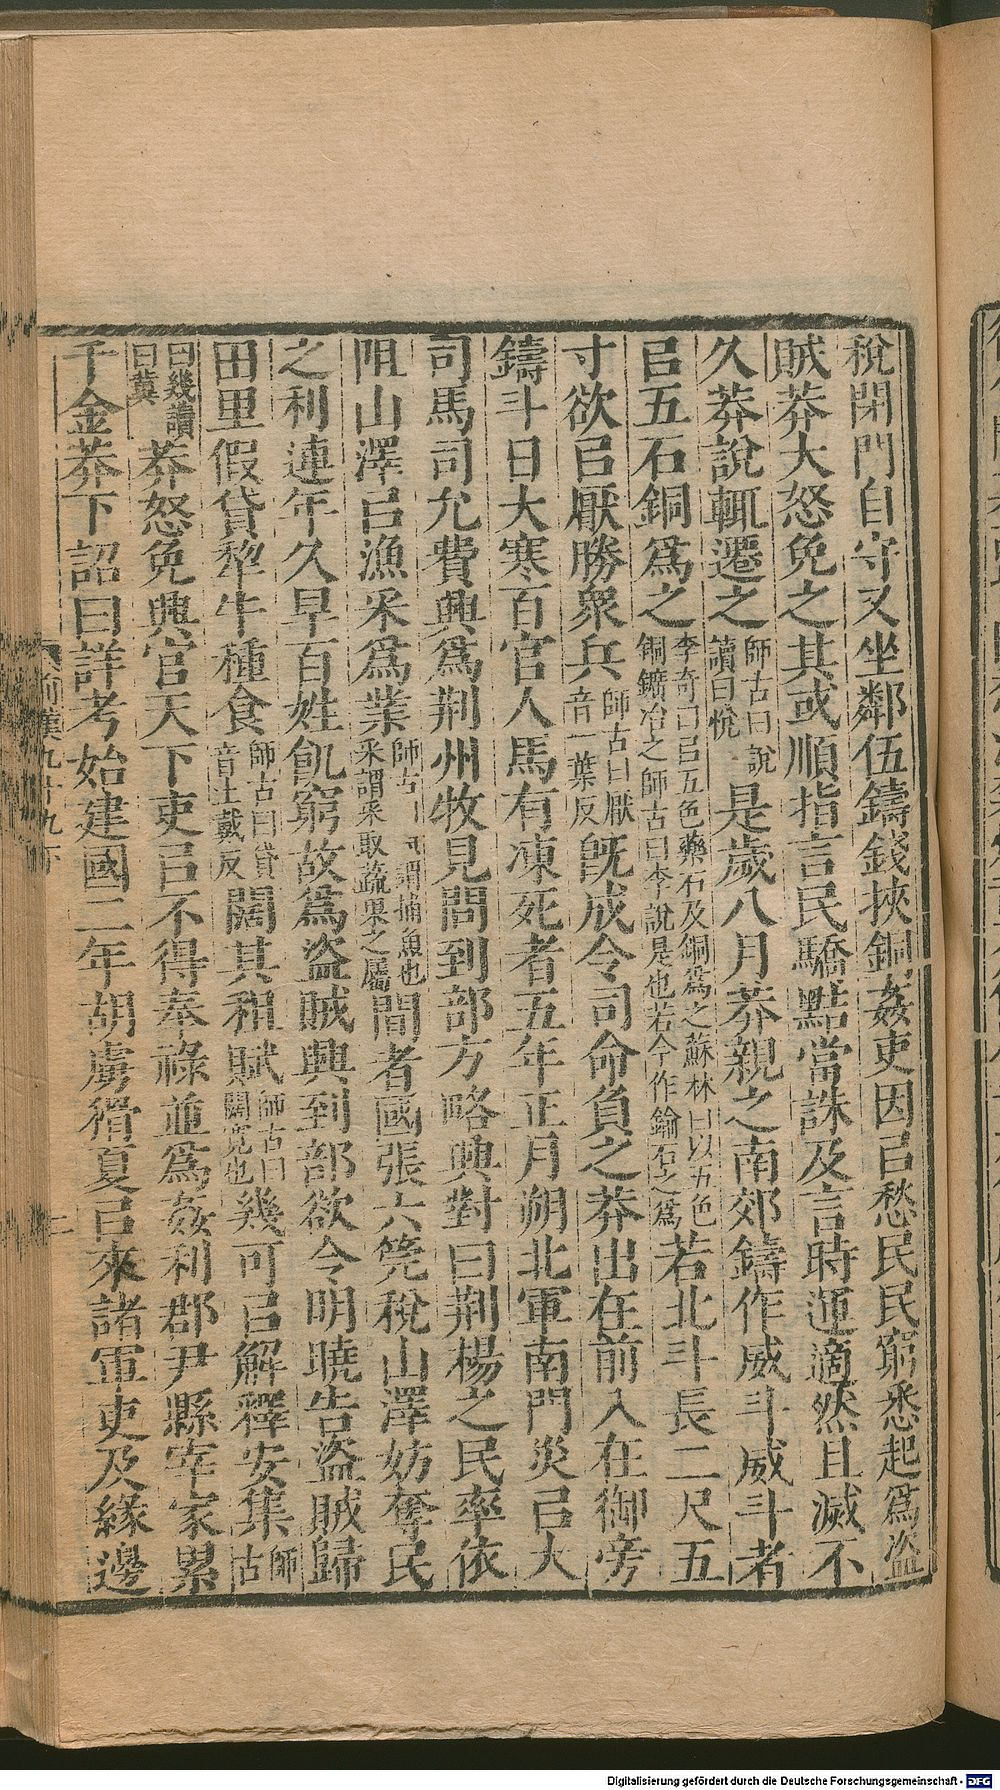 稅閉門自守又坐鄰伍鑄錢挾銅姦吏因㠯愁民民窮悉起爲盜
賊莽大怒免之其或順指言民驕黠當誅及言時運適然且滅不
久莽說輒遷之師古曰說讀曰悅是歲八月莽親之南郊鑄作威斗威斗者
㠯五石銅爲之李奇曰㠯五色藥石及銅爲之蘇林曰以五色銅鑛冶之師古曰李說是也若今作鍮石之爲若北斗長二尺五
寸欲㠯厭勝衆兵師古曰厭音一葉反旣成令司命負之莽出在前入在御旁
鑄斗日大寒百官人馬有凍死者五年正月朔北軍南門災㠯大
司馬司允費興爲荆州牧見問到部方略興對曰荆楊之民率依
阻山澤㠯漁采爲業師古曰漁謂捕魚也采謂采取蔬果之屬間者國張六筦稅山澤妨奪民
之利連年久旱百姓飢窮故爲盜賊興到部欲令明曉告盜賊歸
田里假貸犂牛種食師古曰貸音土戴反闊其租賦師古曰闊寬也幾可㠯解釋安集師古
曰幾讀曰冀莽怒免興官天下吏㠯不得奉祿並爲姦利郡尹縣宰家累
千金莽下詔曰詳考始建國二年胡虜猾夏㠯來諸軍吏及緣邊
前漢九十九下
二
Digitalisierung gefördert durch die Deutsche Forschungsgemeinschaft - DFG